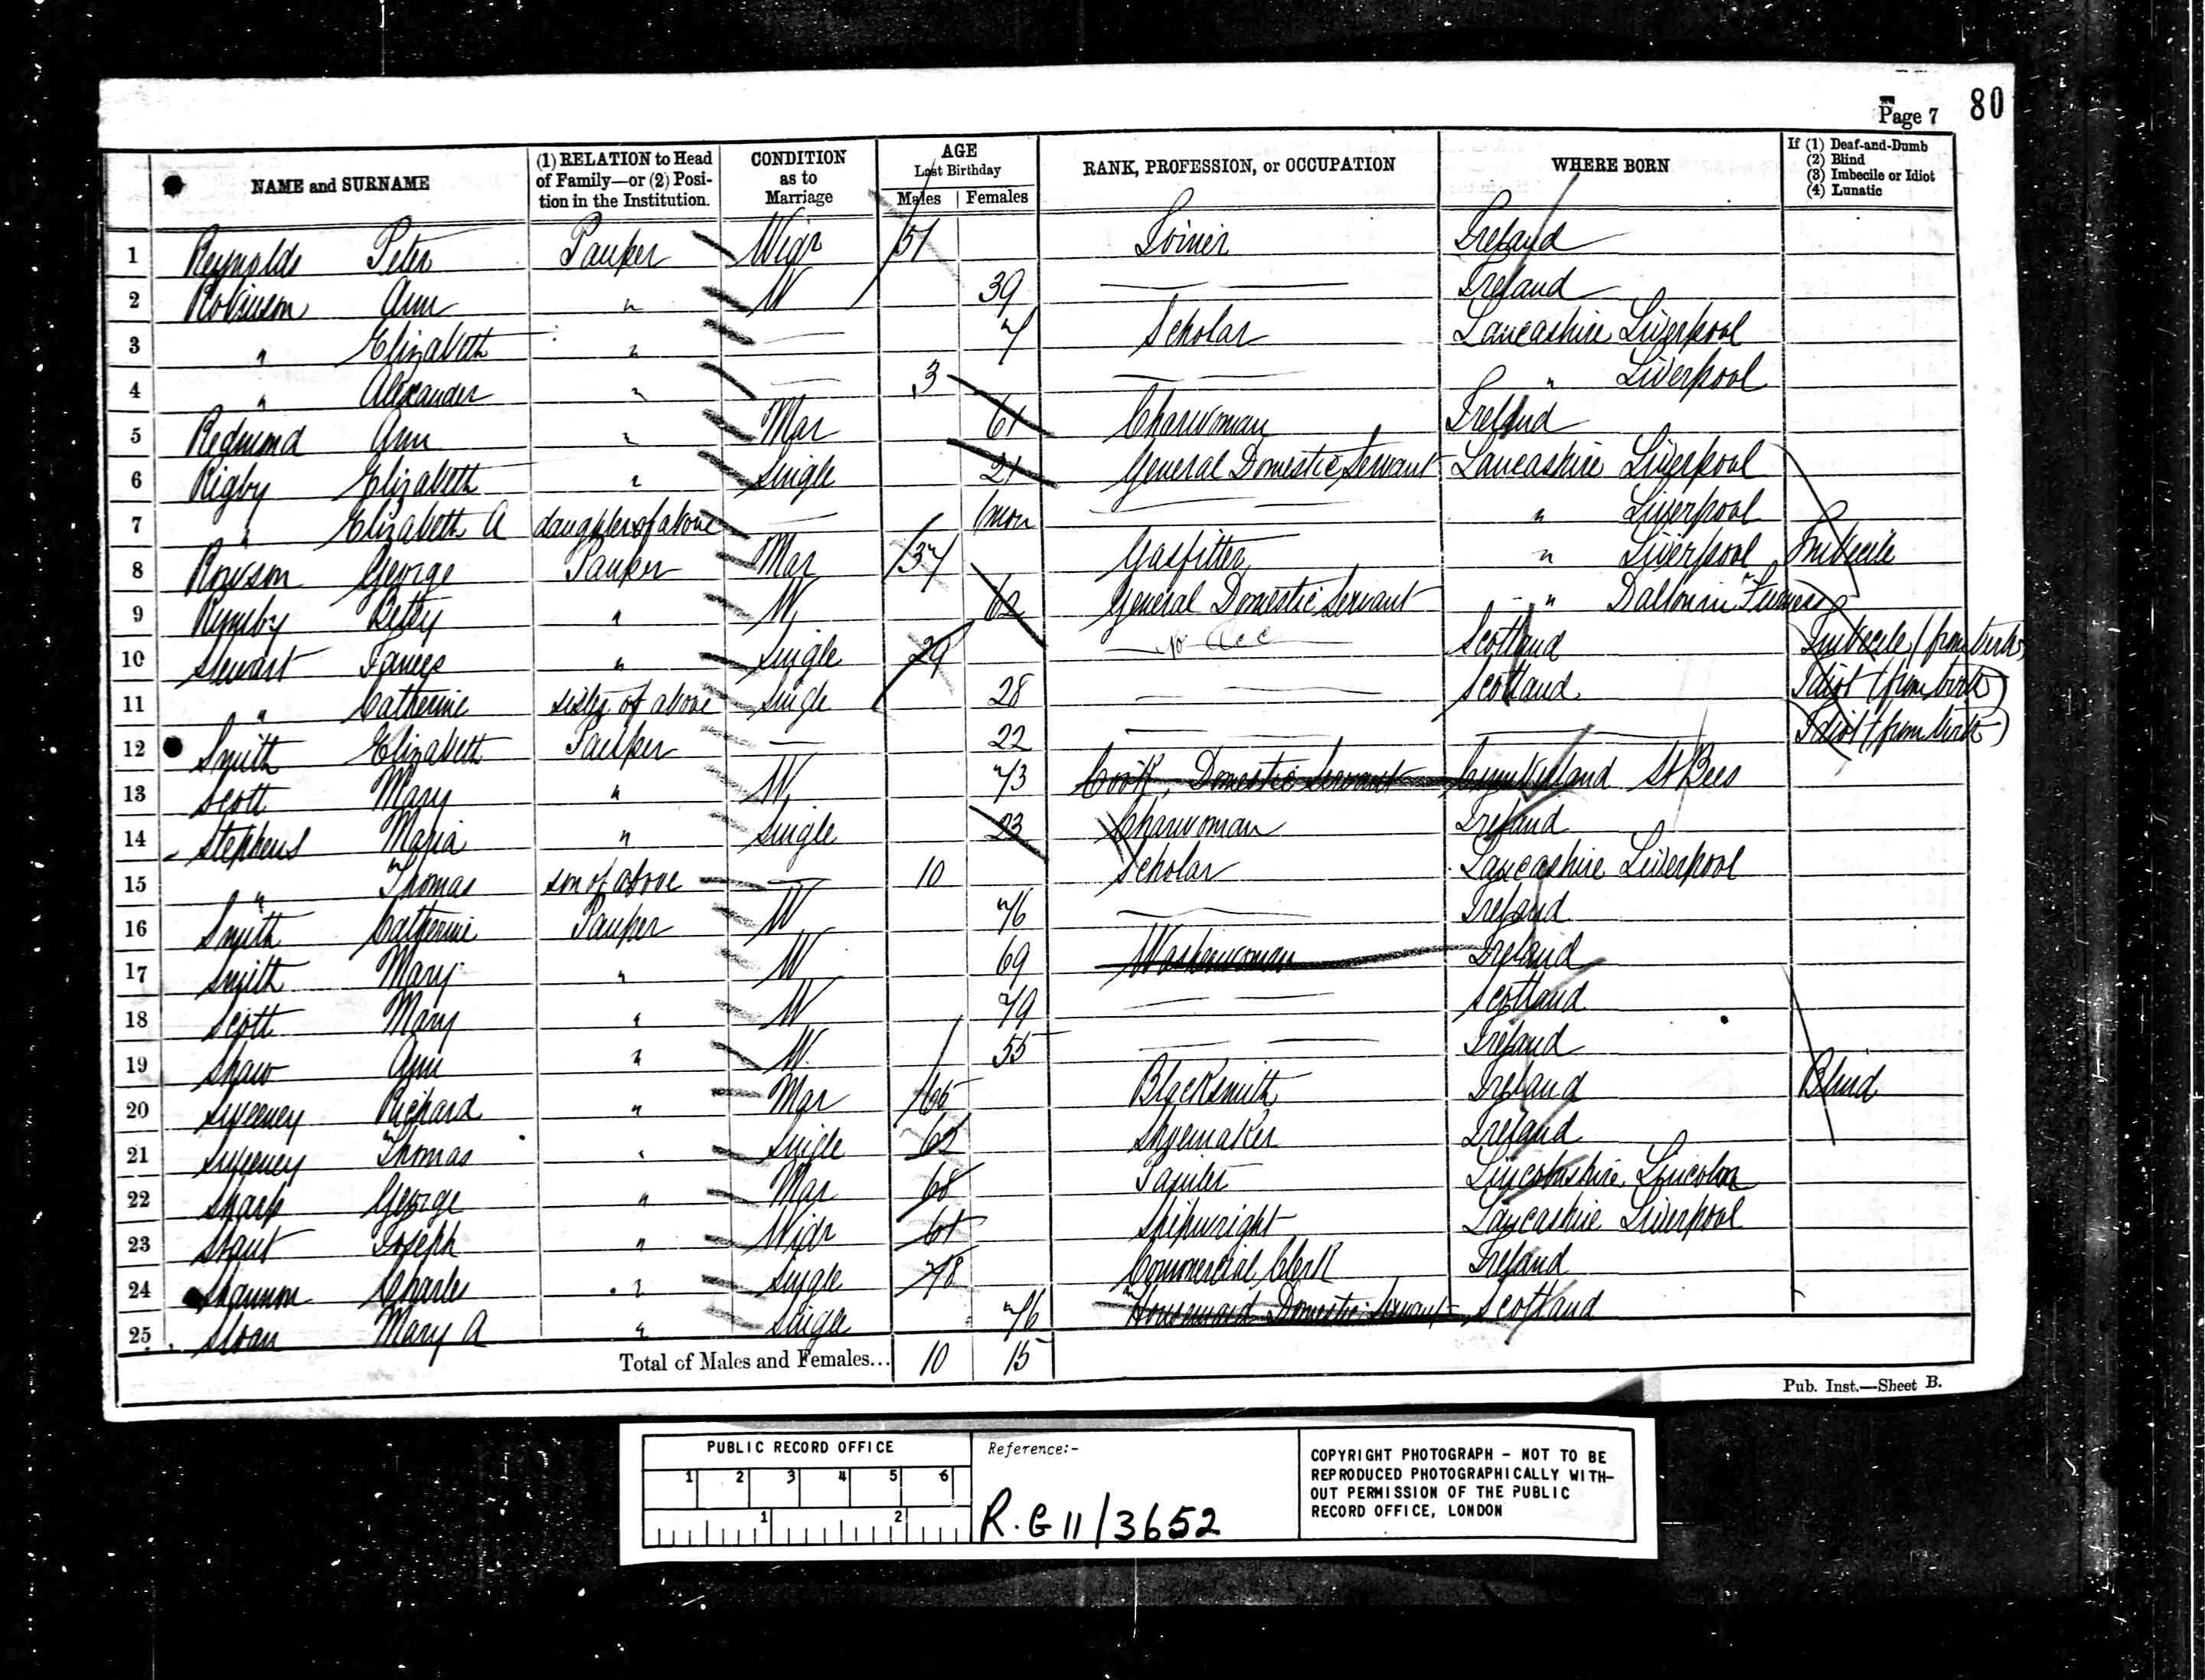 Page 7 80
NAME and SURNAME (1) RELATION to Head of Family—or (2) Position in the Institution. CONDITION as to Marriage AGE Last Birthday Males Females RANK, PROFESSION, or OCCUPATION WHERE BORN If (1) Deaf-and-Dumb (2) Blind (3) Imbecile or Idiot (4) Lunatic
1 Reynolds Peter Pauper Widr 51 Joiner Ireland
2 Robinson Ann " W 39 Ireland
3 " Elizabeth " 7 Scholar Lancashire Liverpool
4 " Alexander " 3 " Liverpool
5 Redmond Ann " Mar 61 Charwoman Ireland
6 Rigby Elizabeth " Single 21 General Domestic Servant Lancashire Liverpool
7 " Elizabeth A daughter of above mon " Liverpool
8 Rowson George Pauper Mar 37 Gasfitter " Liverpool Imbecile
9 Betsy " W 62 General Domestic Servant " Dalton in Furness
10 Stewart James " Single 29 No occ Scotland Imbecile (from birth)
11 " Catherine sister of above Single 28 Scotland Idiot (from birth)
12 Smith Elizabeth Pauper 22 Idiot (from birth)
13 Scott Mary " W 73 Cook, Domestic Servant Cumberland St Bees
14 Stephens Maria " Single 23 Charwoman Ireland
15 " Thomas son of above 10 Scholar Lancashire Liverpool
16 Smith Catherine Pauper W 76 Ireland
17 Smith Mary " W 69 Washerwoman Ireland
18 Scott Mary " W 79 Scotland
19 Shaw Ann " W 55 Ireland
20 Sweeney Richard " Mar Blacksmith Ireland Blind
21 Sweeney Thomas " Single Shoemaker Ireland
22 Sharp George " Mar 68 Painter Lincolnshire, Lincoln
23 Joseph " Widr 61 Shipwright Lancashire Liverpool
24 Shannon Charles " Single 78 Commercial Clerk Ireland
25 Sloan Mary A " Single 76 Housemaid Domestic Servant Scotland
Total of Males and Females... 10 15
Pub. Inst.—Sheet B.
PUBLIC RECORD OFFICE
1 2 3 4 5 6
1 2
Reference:-
R.G 11/3652
COPYRIGHT PHOTOGRAPH - NOT TO BE
REPRODUCED PHOTOGRAPHICALLY WITH-
OUT PERMISSION OF THE PUBLIC
RECORD OFFICE, LONDON